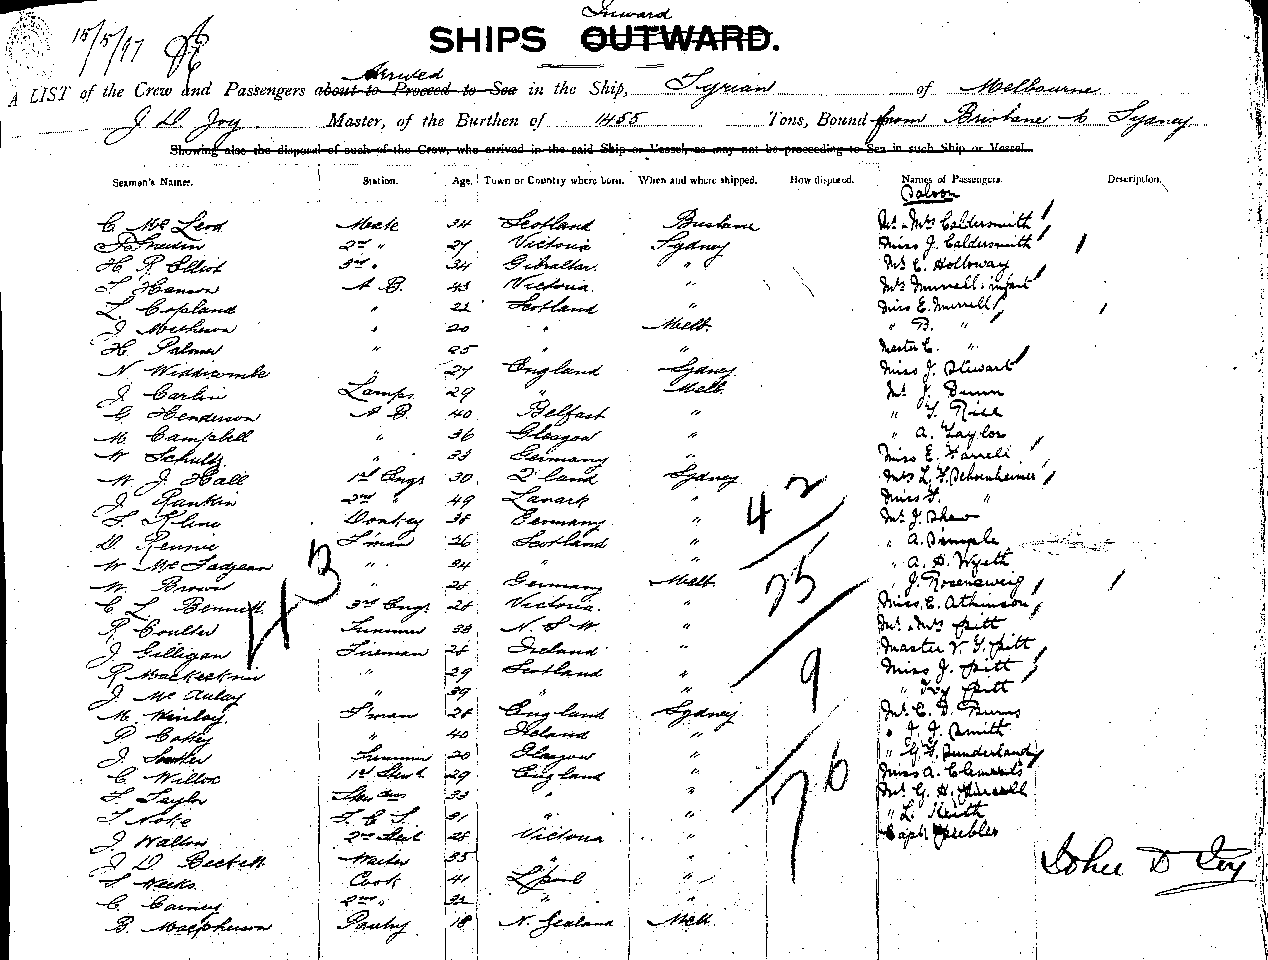 Inward
15/5/97
SHIPS OUTWARD.
Arrived
A LIST of the Crew and Passengers about to Proceed to Sea in the Ship, Tyrian of Melbourne
J D Joy Master, of the Burthen of 1455 Tons, Bound from Brisbane to Sydney
Showing also the disposal of such of the Crew, who arrived in the said Ship or Vessel, as may not be proceeding to Sea in such Ship or Vessel.
Seamen's Names. Station. Age. Town or Country where born. When and where shipped. How disposed. Names of Passengers. Description.
Saloon
C McLeod Mate 34 Scotland Brisbane Mr & Mrs Caldersmith
2nd " 27 Victoria Sydney Miss J. Caldersmith
H R Elliot 3rd " 34 Gibraltar " Mrs C. Holloway
Hanson A B. 43 Victoria " Mrs Murrell & infant
L Copland " 22 Scotland " Miss E. Murrell
J " 20 " Melb. " B. "
H. Palmer " 25 " " Master C. "
N Widdicombe " 27 England Sydney Miss J. Stewart
J Carlin Lamps 29 " Melb. Mr J. Dunn
G Henderson A B. 40 Belfast " " T. Rise
M Campbell " 36 Glasgow " " A. Taylor
W Schultz " 23 Germany " Miss E. Farrell
W. J. Hall 1st Engr 30 Q'land Sydney Mrs L. F. Schoenheimer
J Rankin 2nd " 49 Lanark " Miss F. "
Kline Donkey 38 Germany " Mr J. Shaw
D. Rennie F'man 26 Scotland " " A. Dimple
W McFadzean " 24 " " " A. D. Wyeth
W Brown " 28 Germany Melb " J. Rosenzweig
C L Bennett 3rd Engr 28 Victoria " Miss E. Atkinson
R Coulter Trimmer 38 N. S. W. " Mr & Mrs Pitt
J Gilligan Fireman 28 Ireland " Master V. G. Pitt
R Mackesknie " 29 Scotland " Miss J. Pitt
J McAulay " 39 " " " Ivy Pitt
M. F'man 28 England Sydney Mr C. D. Burns
P " 40 Ireland " " J. J. Smith
J Trimmer 20 Glasgow " " G. F. Sunderland
C Willox 1st Stew'd 29 England " Miss A. Clements
Taylor 33 " " Mr G. H.
Noke F. C. S. 21 " " " L. Heath
J Walton 2nd Stew'd 28 Victoria " Capt Peebles
J D Beckett Waiter 35 " "
Weeks Cook 41 L'pool "
C. Carney 2nd " 32 " "
B. Macpherson Pantry 18 N. Zealand Melb.
43
42
25
9
76
John D Joy